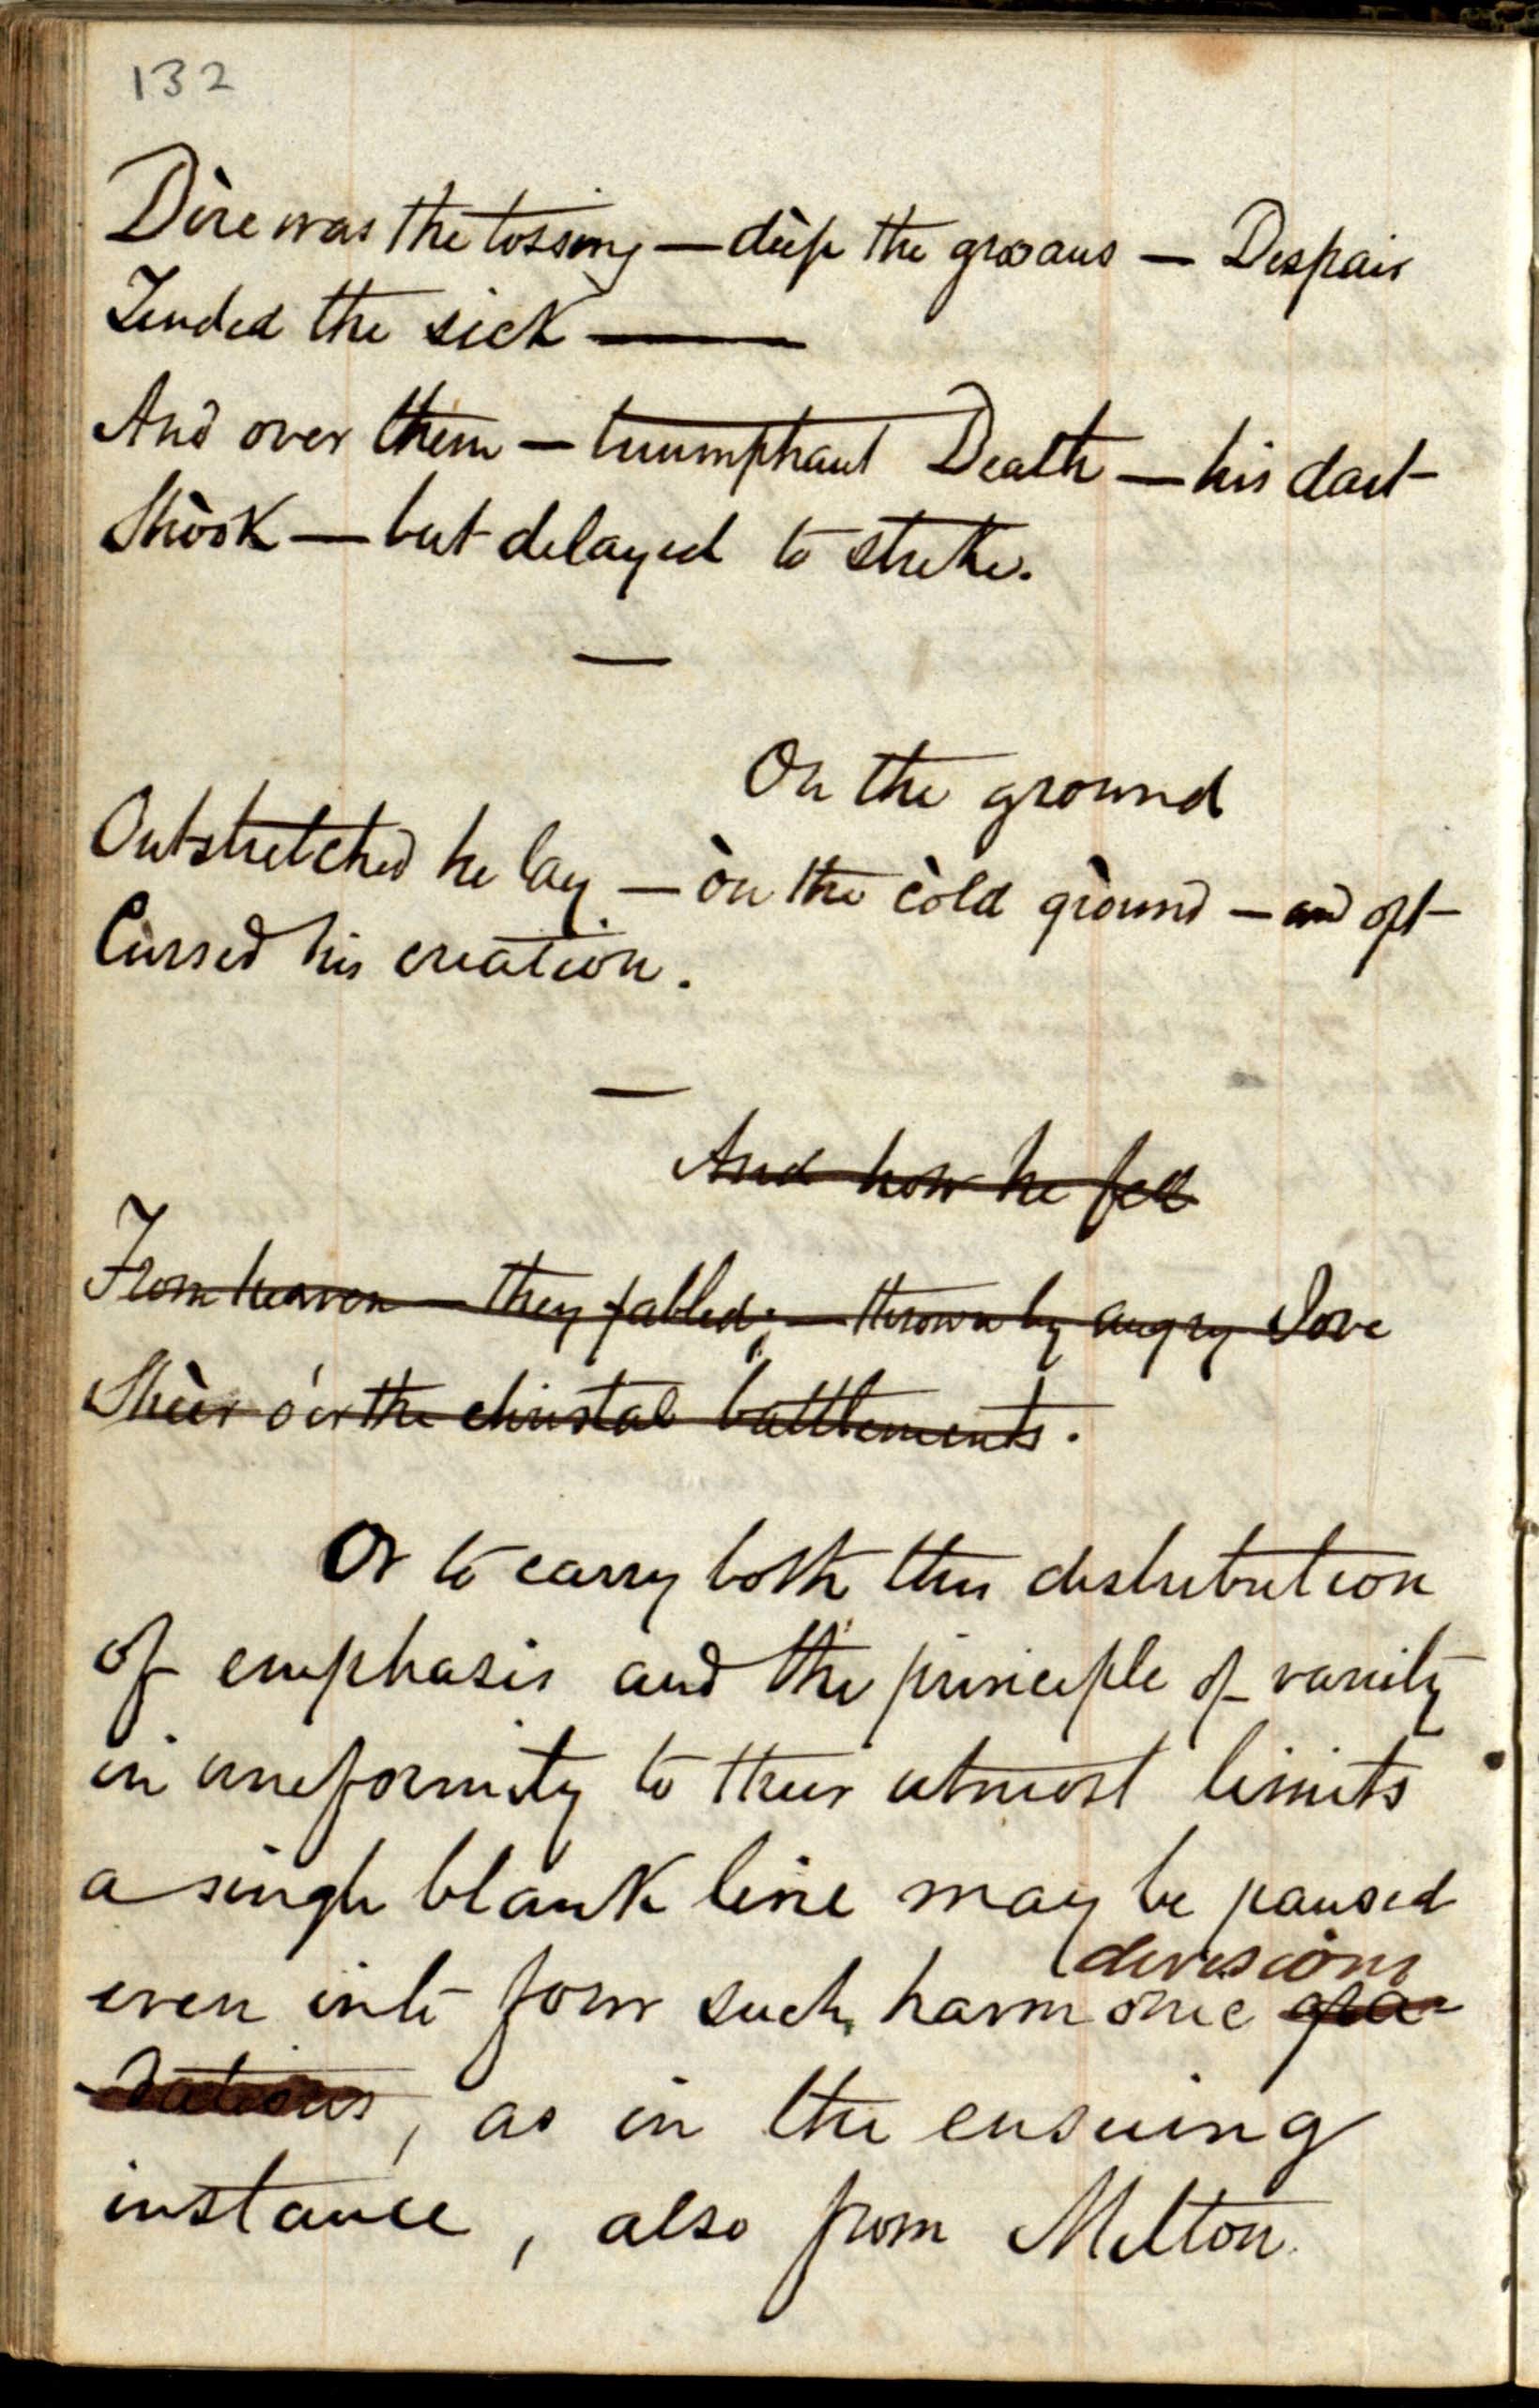 132
Dìre was the tossing — dèep the groans — Despair
Tended the sick ———
And over them — triumphant Death — his dart
Shòok — but delayed to strike.
—
On the ground
Outstretched he lay — òn the còld gròund — and oft
Cursed his creation.
—
And how he fell
From heaven — they fabled; — thrown by angry Jove
Shèer o'er the christal battlements.
Or to carry both this distribution
of emphasis and the principle of variety
in uniformity to their utmost limits
a single blank line may be paused
divisions
even into four such harmonic gra-
-dations, as in the ensuing
instance, also from Milton.